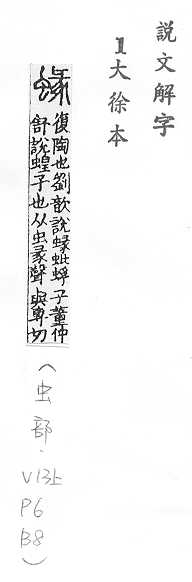 説文解字
1大徐本
蝝 復陶也劉歆說蝝蚍蜉子董仲
舒說蝗子也从虫彖聲與專切
(虫部.V13上P6B8)